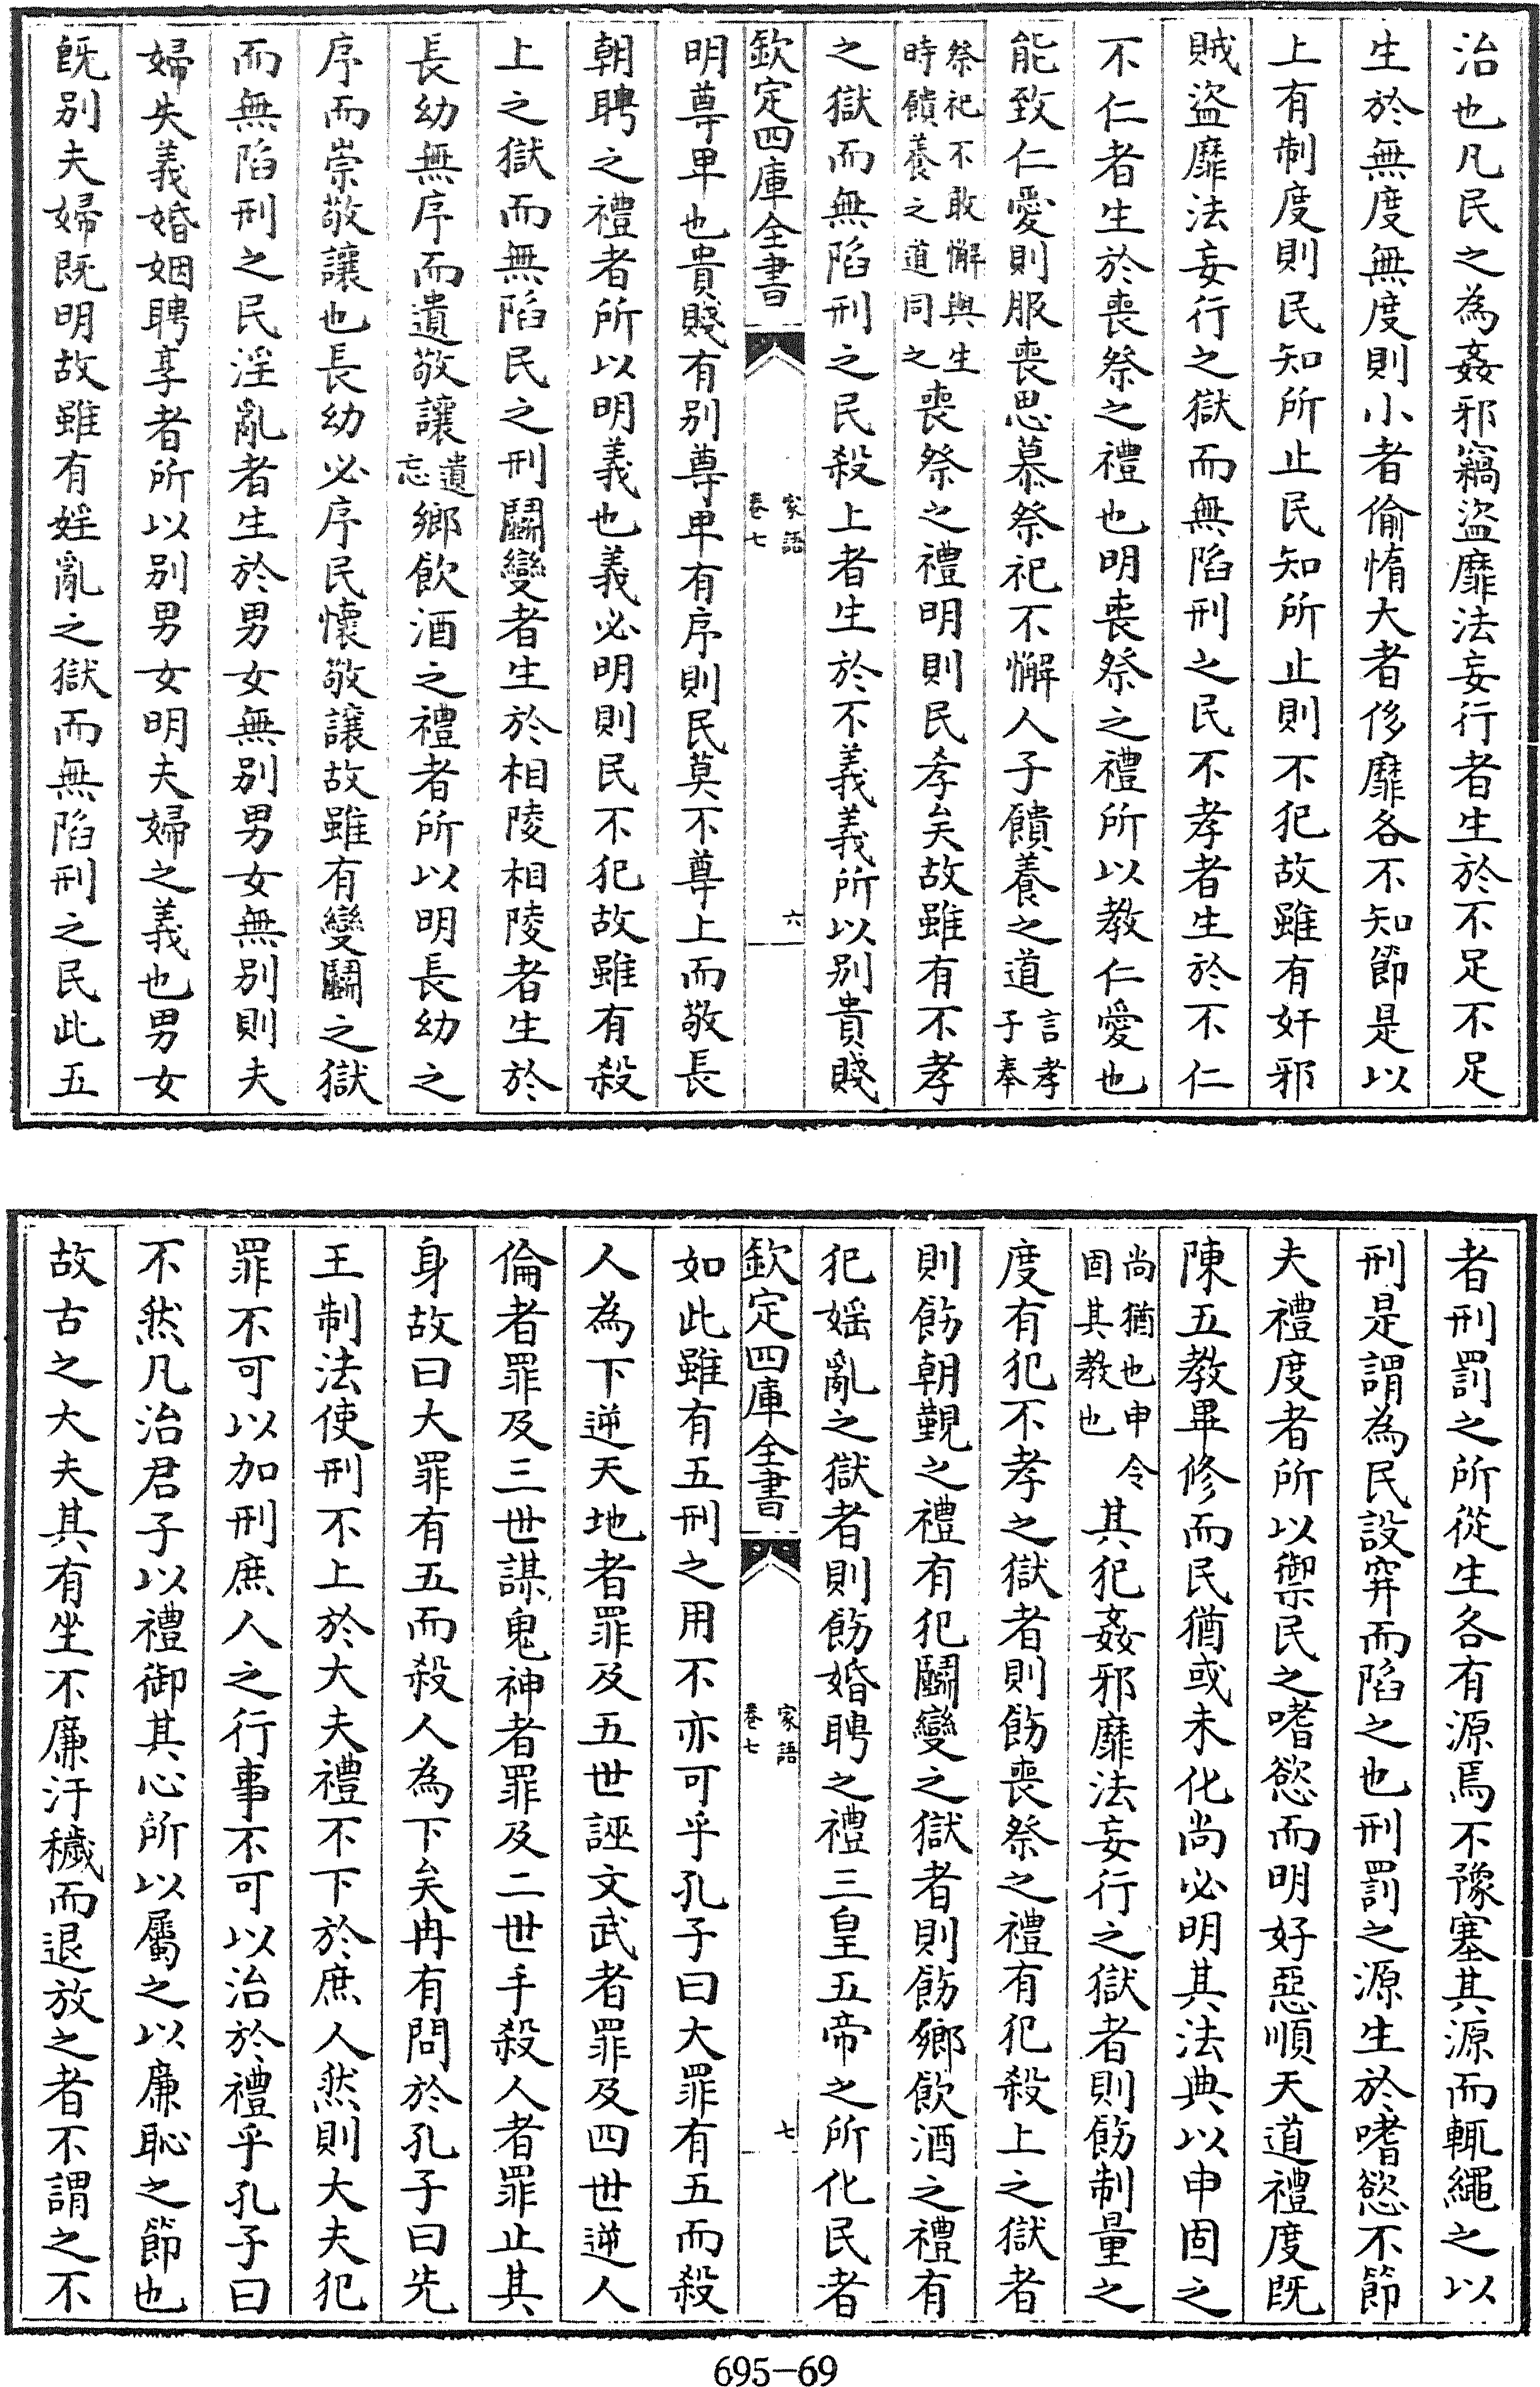 治也凡民之為姦邪竊盜靡法妄行者生於不足不足
生於無度無度則小者偷惰大者侈靡各不知節是以
上有制度則民知所止民知所止則不犯故雖有奸邪
賊盜靡法妄行之獄而無陷刑之民不孝者生於不仁
不仁者生於喪祭之禮也明喪祭之禮所以教仁愛也
能致仁愛則服喪思慕祭祀不懈人子饋養之道言孝子奉
祭祀不敢懈與生時饋養之道同之喪祭之禮明則民孝矣故雖有不孝
之獄而無陷刑之民殺上者生於不義義所以别貴賤
欽定四庫全書
家語
卷七
六
明尊卑也貴賤有别尊卑有序則民莫不尊上而敬長
朝聘之禮者所以明義也義必明則民不犯故雖有殺
上之獄而無陷民之刑鬭變者生於相陵相陵者生於
長幼無序而遺敬讓遺忘鄉飲酒之禮者所以明長幼之
序而崇敬讓也長幼必序民懷敬讓故雖有變鬭之獄
而無陷刑之民淫亂者生於男女無别男女無别則夫
婦失義婚姻聘享者所以别男女明夫婦之義也男女
旣别夫婦既明故雖有婬亂之獄而無陷刑之民此五
者刑罰之所從生各有源焉不豫塞其源而輒繩之以
刑是謂為民設穽而陷之也刑罰之源生於嗜慾不節
夫禮度者所以禦民之嗜慾而明好惡順天道禮度既
陳五教畢修而民猶或未化尚必明其法典以申固之
尚猶也申令固其教也其犯姦邪靡法妄行之獄者則飭制量之
度有犯不孝之獄者則飭喪祭之禮有犯殺上之獄者
則飭朝覲之禮有犯鬭變之獄者則飭鄉飲酒之禮有
犯婬亂之獄者則飭婚聘之禮三皇五帝之所化民者
欽定四庫全書
家語
卷七
七
如此雖有五刑之用不亦可乎孔子曰大罪有五而殺
人為下逆天地者罪及五世誣文武者罪及四世逆人
倫者罪及三世謀鬼神者罪及二世手殺人者罪止其
身故曰大罪有五而殺人為下矣冉有問於孔子曰先
王制法使刑不上於大夫禮不下於庶人然則大夫犯
罪不可以加刑庶人之行事不可以治於禮乎孔子曰
不然凡治君子以禮御其心所以屬之以廉恥之節也
故古之大夫其有坐不廉汙穢而退放之者不謂之不
695-69